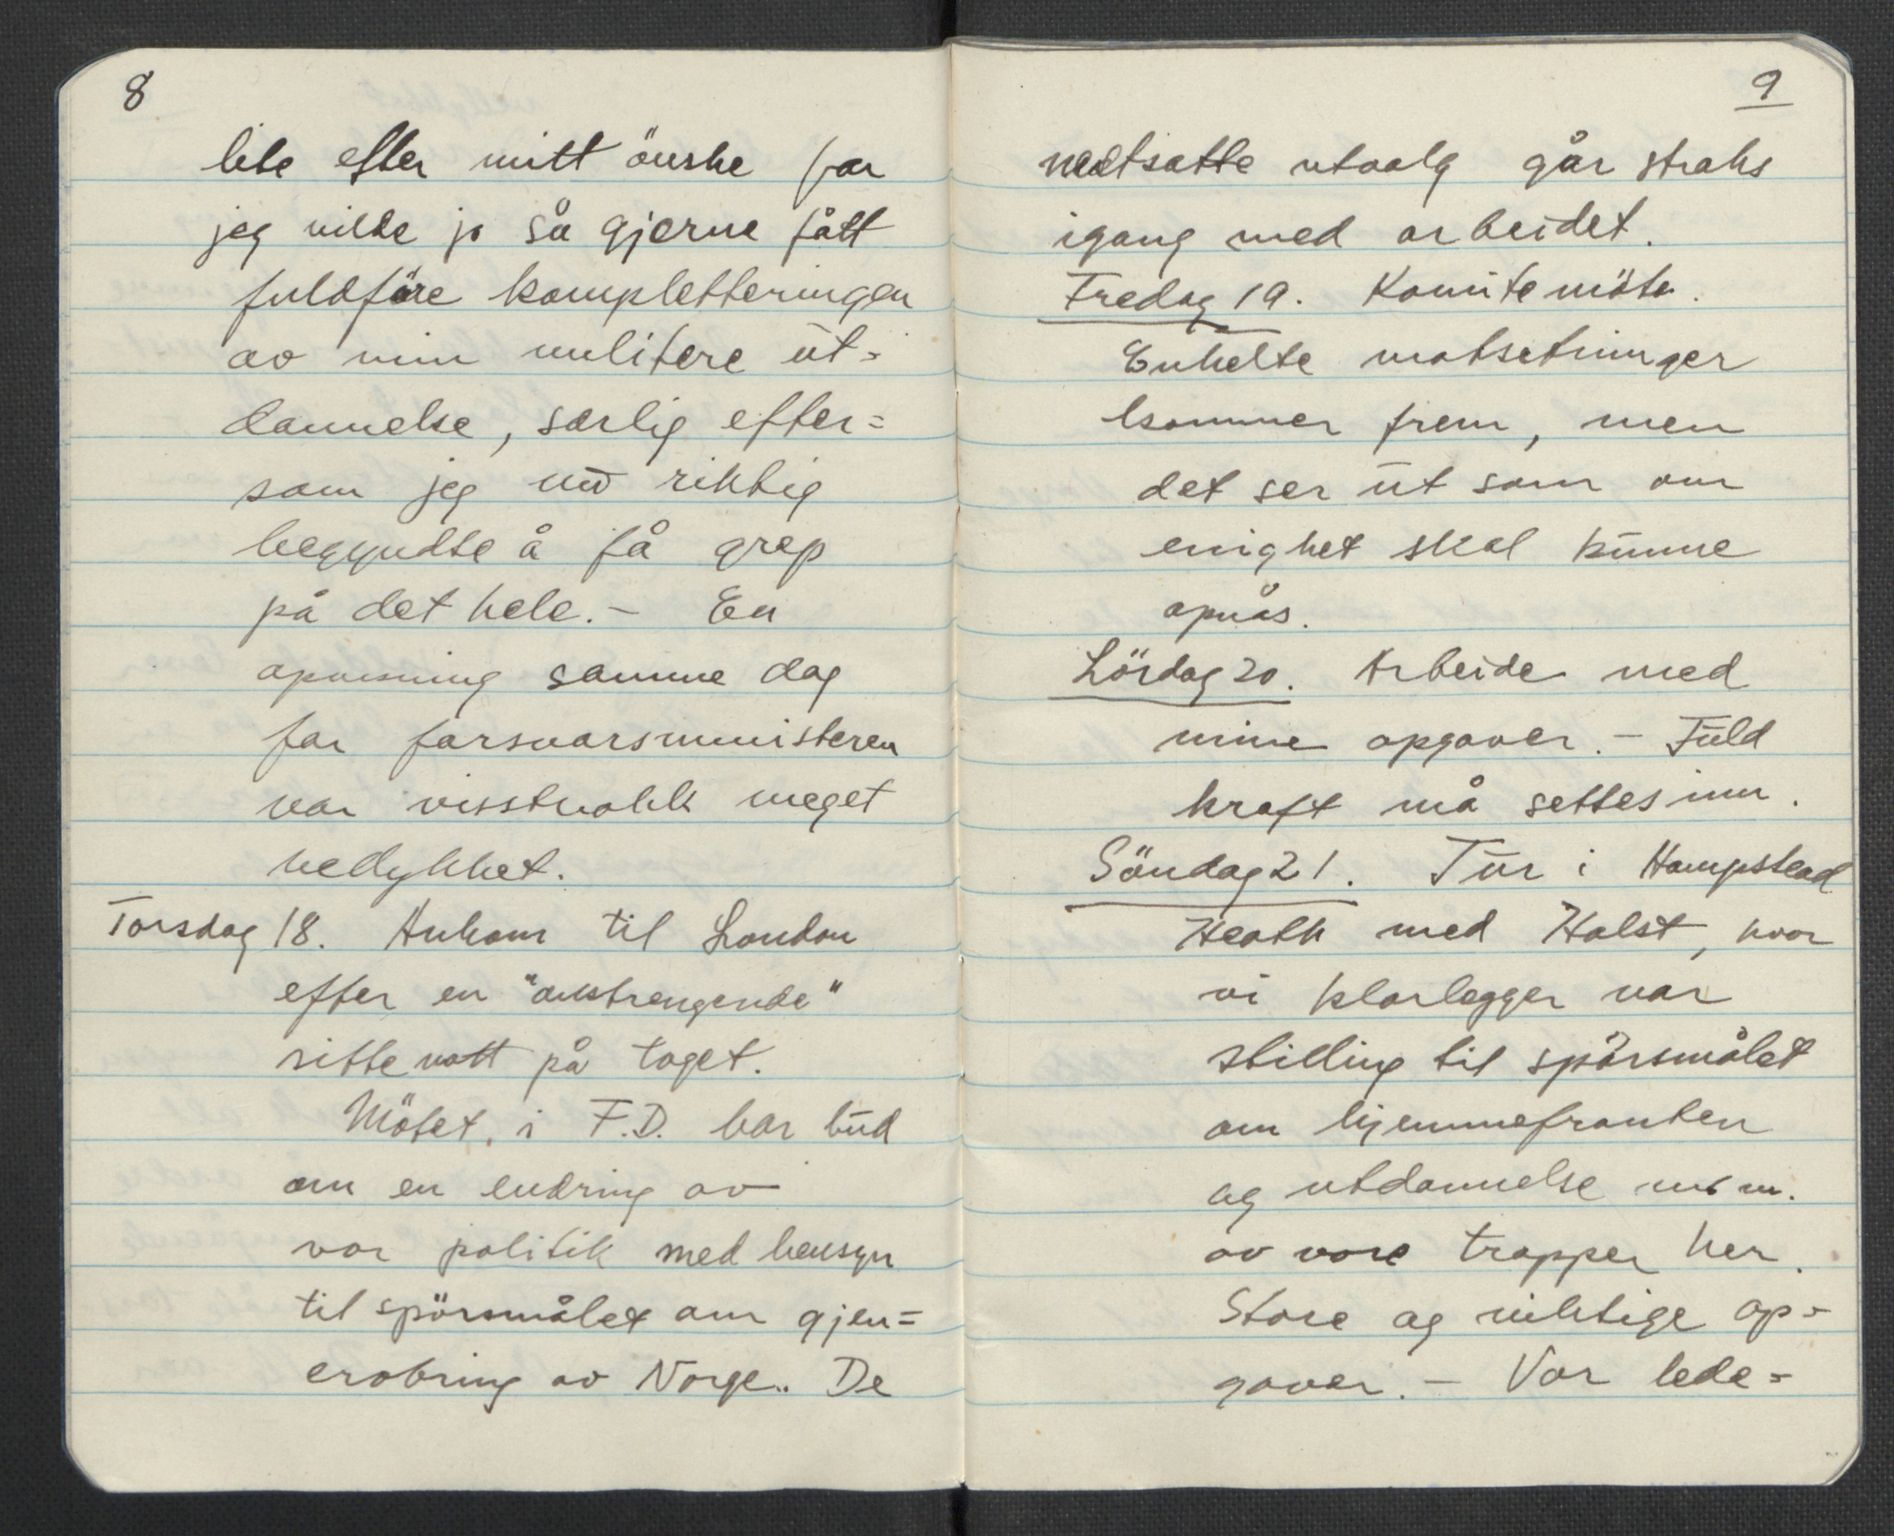 8
lite efter mitt önske for
jeg vilde jo så gjerne fått
fuldföre kompletteringen
av min militere ut=
dannelse, særlig efter=
som jeg nu riktig
begyndte å få grep
på det hele. – En
opvisning samme dag
for forsvarsministeren
var visstnokk meget
vellykket.
Torsdag 18. Ankom til London
efter en "anstrengende"
sittenatt på toget.
Mötet i F.D. har bud
om en endring av
vor politik med hensyn
til spörsmålet om gjen=
erobring av Norge.. De
9
nedtsatte utvalg går straks
igang med arbeidet.
Fredag 19. Komitemöte.
Enkelte motsetninger
kommer frem, men
det ser ut som om
enighet skal kunne
opnås.
Lördag 20. Arbeide med
mine opgaver. – Fuld
kraft må settes inn.
Söndag 21. Tur i Hampstead
Heath med Holst, hvor
vi klarlegger vor
stilling til spörsmålet
om hjemmefronten
og utdannelse m.m.
av vore tropper her.
Store og viktige op=
gaver. – Vor lede=